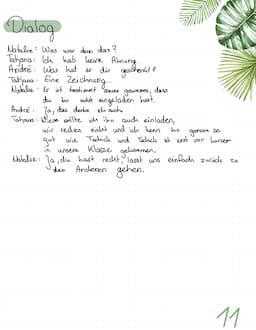 Dialog
Natalie: Was war denn das?
Tatjana: Ich hab keine Ahnung.
André: Was hat er dir geschenkt?
Tatjana: Eine Zeichnung.
Natalie: Er ist bestimmt sauer gewesen, dass
du ihn nicht eingeladen hast.
André: Ja, das denke ich auch.
Tatjana: Wieso sollte ich ihn auch einladen,
wir reden nicht und ich kenn ihn genau so
gut wie und ist erst vor kurzer
in unsere Klasse gekommen.
Natalie: Ja, du hast recht, lasst uns einfach zurück zu
den Anderen gehen.
11